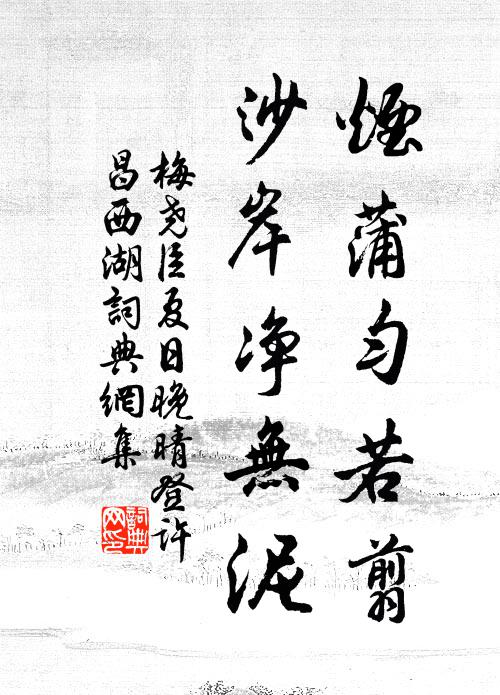 煙蒲匀若翦
沙岸净無泥
梅尧臣夏日晚晴登许
昌西湖詞典網集
詞典网